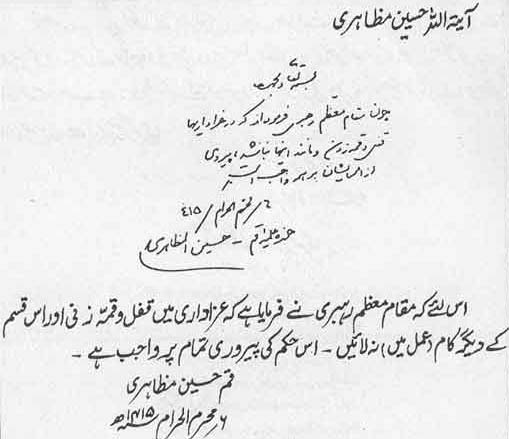 آیۃ اللہ حسین مظاہری
بسمه تعالی
چون مقام معظم رهبری فرموده‌اند که در عزاداریها
قفل و قمه زدن و مانند اینها نباشد، پیروی
از ایشان بر همه واجب است
٦/محرم الحرام/٤١٥
حوزه علمیه قم - حسین المظاهری
اس لئے کہ مقام معظم رہبری نے فرمایا ہے کہ عزاداری میں قفل و قمہ زنی اور اس قسم
کے دیگر کام (عمل میں) نہ لائیں - اس حکم کی پیروری تمام پر واجب ہے -
قم حسین مظاہری
۶ محرم الحرام سنہ ۱۴۱۵ھ